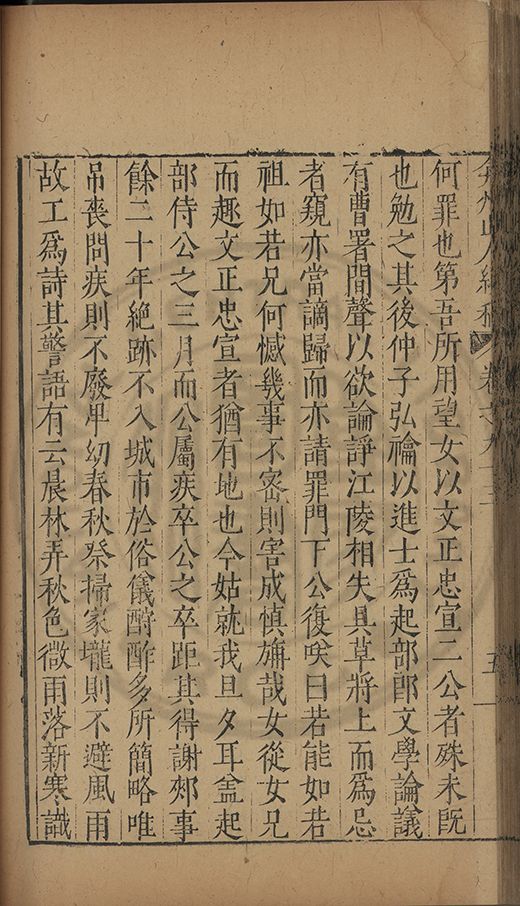 弇州山人續稿 卷之九十三 五
何罪也第吾所用望女以文正忠宣二公者殊未旣
也勉之其後仲子弘禴以進士爲起部郎文學論議
有曹署間聲以欲論諍江陵相失具草將上而爲忌
者窺亦當謫歸而亦請罪門下公復咲曰若能如若
祖如若兄何憾幾事不密則害成慎旃哉女從女兄
而趣文正忠宣者猶有地也今姑就我旦夕耳盖起
部侍公之三月而公屬疾卒公之卒距其得謝郟事
餘二十年絶跡不入城市於俗儀酧酢多所簡略唯
吊喪問疾則不廢畢幼春秋祭掃冢壠則不避風雨
故工爲詩其警語有云晨林弄秋色微雨落新寒識